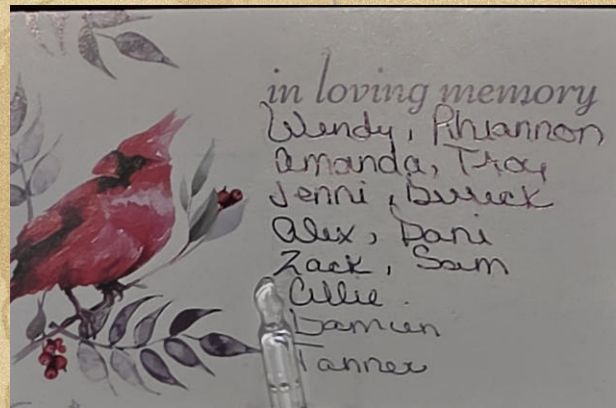 in loving memory
Wendy, Rhiannon
Amanda, Troy
Jenni, Derreck
Alex, Dani
Zack, Sam
Callie
Damien
Tanner